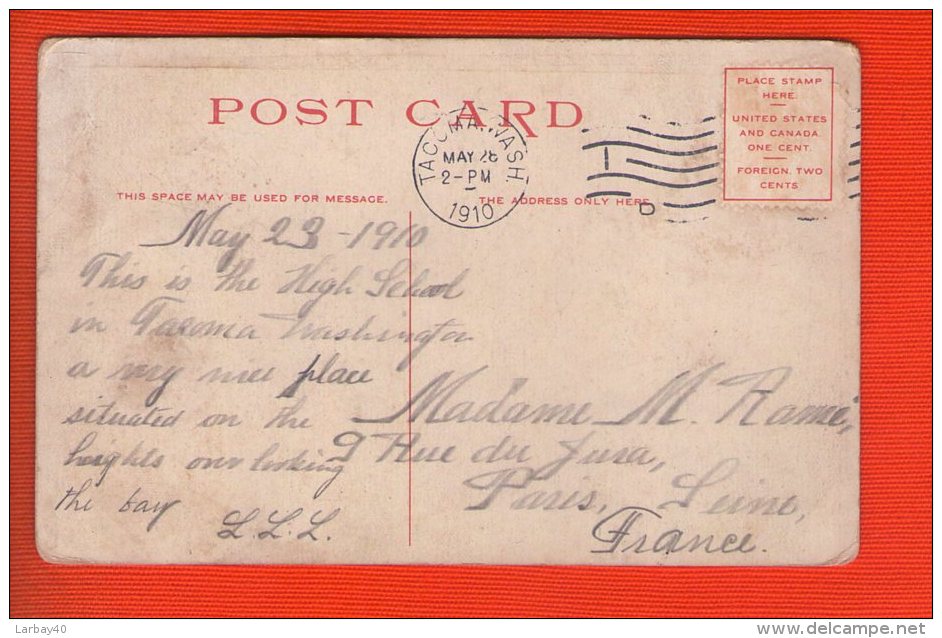 POST CARD
TACOMA, WASH.
MAY 28
2-PM
1910
D
PLACE STAMP
HERE.
UNITED STATES
AND CANADA
ONE CENT.
FOREIGN, TWO
CENTS
THIS SPACE MAY BE USED FOR MESSAGE.
THE ADDRESS ONLY HERE
May 23 - 1910
This is the High School
in Tacoma Washington
a very nice place
situated on the
heights over looking
the bay
L.L.L.
Madame M. Ramé,
9 Rue du Jura,
Paris, Seine,
France.
Larbay40
http://www.delcampe.net